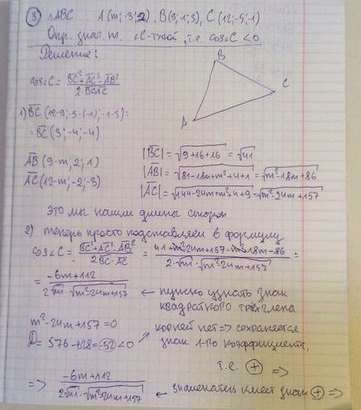 ③ △ABC A(m;-3;2), B(9;-1;3), C(12;-5;-1)
Опр. знач m, ∠C-тупой, т.е. cos∠C < 0
Решение:
B
C
A
cos∠C = (BC² + AC² - AB²) / (2·BC·AC)
1) BC (12-9; -5-(-1); -1-3) =
= BC (3; -4; -4)
AB (9-m; 2; 1)
AC (12-m; -2; -3)
|BC| = √(9+16+16) = √41
|AB| = √(81-18m+m²+4+1) = √(m²-18m+86)
|AC| = √(144-24m+m²+4+9) = √(m²-24m+157)
это мы нашли длины сторон
2) теперь просто подставляем в формулу
cos∠C = (BC² + AC² - AB²) / (2·BC·AC) = (41+m²-24m+157-m²+18m-86) / (2·√41·√(m²-24m+157)) =
= (-6m+112) / (2√41·√(m²-24m+157)) ← нужно узнать знак
квадратного трёхчлена
m²-24m+157=0
D = 576-628=-52<0 корней нет => сохраняется
знак 1-го коэффициента,
т.е. ⊕ =>
=> (-6m+112) / (2√41·√(m²-24m+157)) ← знаменатель имеет знак ⊕ =>